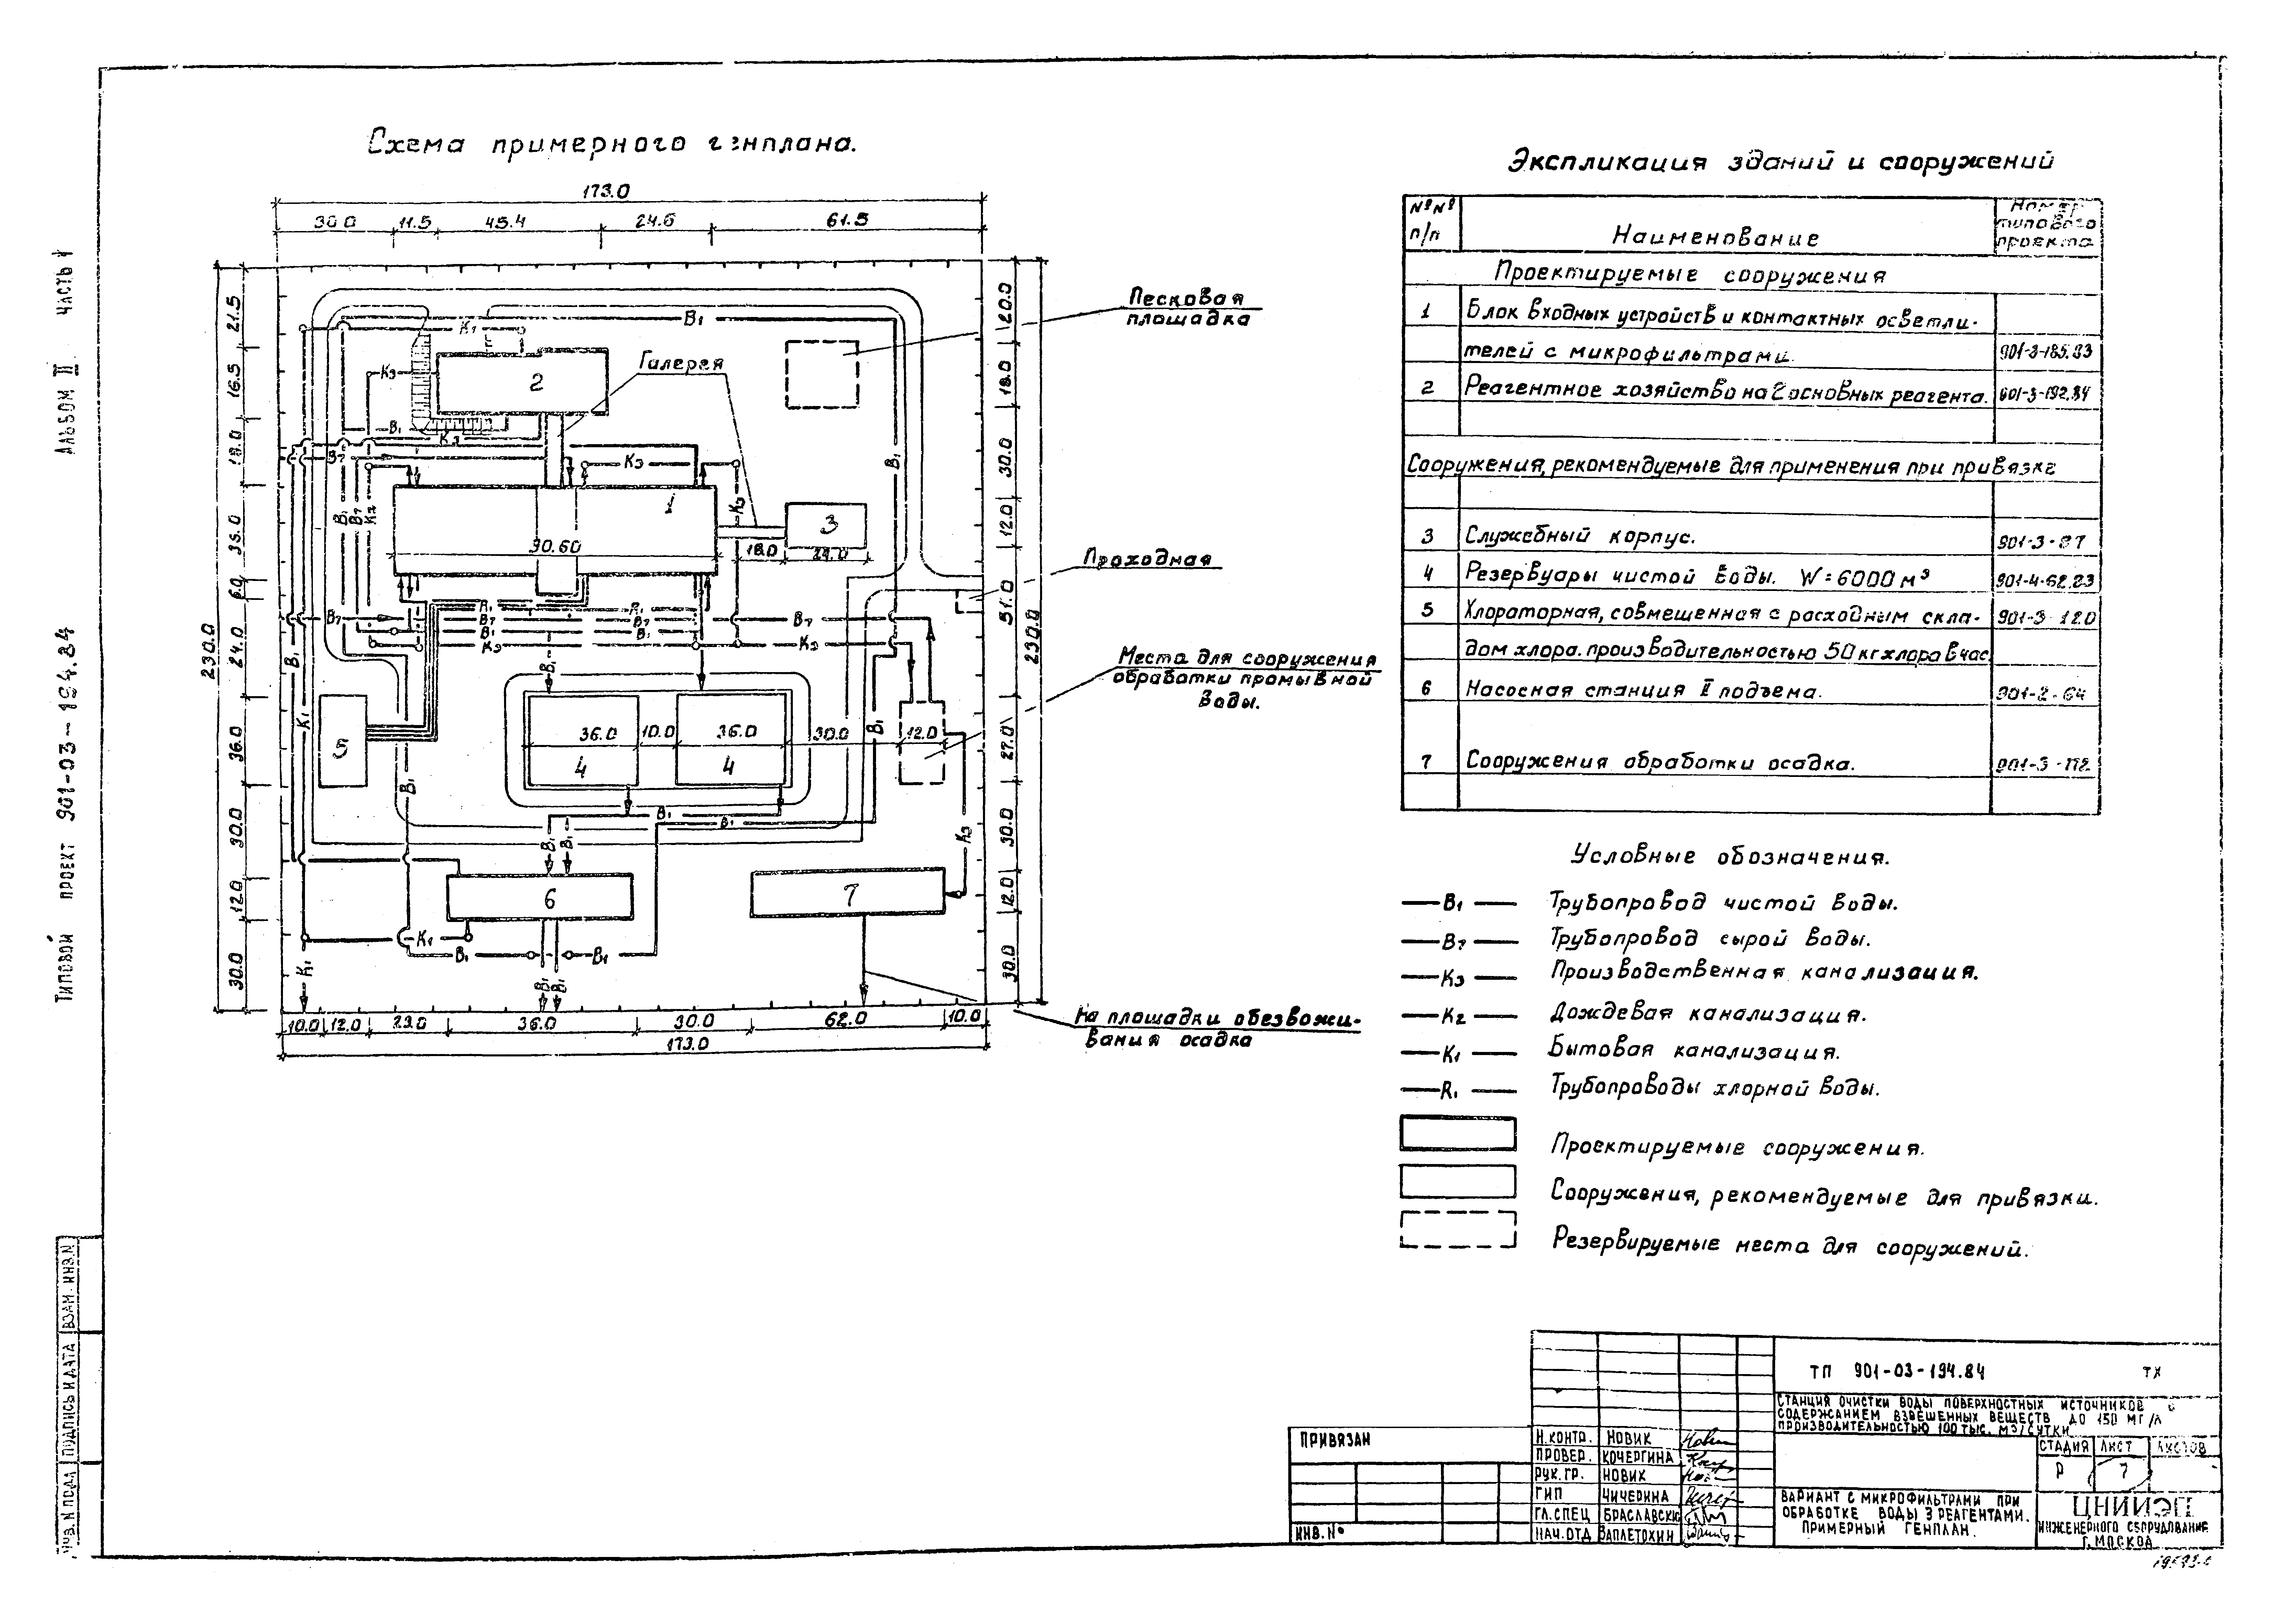 Схема примерного генплана.
173.0
30.0 11.5 45.4 24.6 61.5
230.0
21.5
16.5
18.0
6.0
24.0
36.0
30.0
12.0
30.0
20.0
18.0
30.0
12.0
51.0
27.0
30.0
12.0
30.0
230.0
К1
В1
Галерея
К3
2
В1
К3
В7
К3
1
3
30.60
18.0
24.0
В1
В7
К2
К3
В1
R1
R1
В7
В7
В7
В7
В1
В1
К3
К3
В1
В1
К1
5
36.0 10.0 36.0 30.0 12.0
4
4
В1
В1
В1
В1
В1
В1
К3
6
7
К1
К1
В1
В1
В1
В1
10.0 12.0 23.0 36.0 30.0 62.0 10.0
173.0
Песковая
площадка
Проходная
Места для сооружения
обработки промывной
воды.
На площадки обезвожи-
вания осадка
Экспликация зданий и сооружений
№№
п/п
Наименование
Номер
типового
проекта
Проектируемые сооружения
1 Блок входных устройств и контактных осветли-
телей с микрофильтрами. 901-3-185.83
2 Реагентное хозяйство на 2 основных реагента. 901-3-192.84
Сооружения, рекомендуемые для применения при привязке
3 Служебный корпус. 901-3-87
4 Резервуары чистой воды. W=6000м³ 901-4-62.83
5 Хлораторная, совмещенная с расходным скла- 901-3-120
дом хлора. производительностью 50 кг хлора в час
6 Насосная станция II подъема. 901-2-64
7 Сооружения обработки осадка. 901-3-112
Условные обозначения.
В1 Трубопровод чистой воды.
В7 Трубопровод сырой воды.
К3 Производственная канализация.
К2 Дождевая канализация.
К1 Бытовая канализация.
R1 Трубопроводы хлорной воды.
Проектируемые сооружения.
Сооружения, рекомендуемые для привязки.
Резервируемые места для сооружений.
ТИПОВОЙ ПРОЕКТ 901-03-194.84 АЛЬБОМ II ЧАСТЬ 1
ИНВ. N ПОДЛ ПОДПИСЬ И ДАТА ВЗАМ. ИНВ. N
ПРИВЯЗАН
ИНВ. №
Н.КОНТР. НОВИК
ПРОВЕР. КОЧЕРГИНА
РУК.ГР. НОВИК
ГИП ЧИЧЕРИНА
ГЛ.СПЕЦ БРАСЛАВСКИЙ
НАЧ.ОТД ЗАПЛЕТОХИН
ТП 901-03-194.84 ТХ
СТАНЦИЯ ОЧИСТКИ ВОДЫ ПОВЕРХНОСТНЫХ ИСТОЧНИКОВ С
СОДЕРЖАНИЕМ ВЗВЕШЕННЫХ ВЕЩЕСТВ ДО 150 МГ/Л
ПРОИЗВОДИТЕЛЬНОСТЬЮ 100 ТЫС. М3/СУТКИ
СТАДИЯ ЛИСТ ЛИСТОВ
Р 7
ВАРИАНТ С МИКРОФИЛЬТРАМИ ПРИ
ОБРАБОТКЕ ВОДЫ 3 РЕАГЕНТАМИ.
ПРИМЕРНЫЙ ГЕНПЛАН.
ЦНИИЭП
ИНЖЕНЕРНОГО ОБОРУДОВАНИЯ
Г. МОСКВА